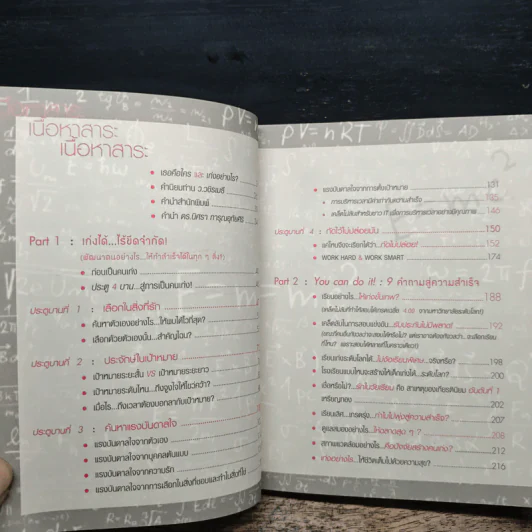 เนื้อหาสาระ
เนื้อหาสาระ
• เธอคือใคร และ เก่งอย่างไร?
• คำนิยมท่าน ว.วชิรเมธี
• คำนำสำนักพิมพ์
• คำนำ ดร.นิศรา การุณอุทัยศิริ
Part 1 : เก่งได้...ไร้ขีดจำกัด!
• ก่อนเป็นคนเก่ง
• ประตู 4 บาน...สู่การเป็นคนเก่ง!
ประตูบานที่ 1 : เลือกในสิ่งที่รัก
• ค้นหาตัวเองอย่างไร...ให้พบได้ไวที่สุด?
• เลือกด้วยตัวเองนั้น...สำคัญไฉน?
ประตูบานที่ 2 : ประจักษ์ในเป้าหมาย
• เป้าหมายระยะสั้น VS เป้าหมายระยะยาว
• เป้าหมายระดับไหน...ถึงจูงใจให้ไขว่คว้า?
• เมื่อไร...ถึงเวลาต้องบอกลากับเป้าหมาย?
ประตูบานที่ 3 : ค้นหาแรงบันดาลใจ
• แรงบันดาลใจจากตัวเอง
• แรงบันดาลใจจากบุคคลต้นแบบ
• แรงบันดาลใจจากความรัก
• แรงบันดาลใจจากการเลือกในสิ่งที่ชอบและทำในสิ่งที่ใช่
• แรงบันดาลใจจากการตั้งเป้าหมาย 131
• การบริหารเวลามีค่าเท่ากับความสำเร็จ 135
• เคล็ดไม่ลับสำหรับชาว IT เพื่อการบริหารเวลาอย่างมีคุณภาพ 146
ประตูบานที่ 4 : กัดไว้ไม่ปล่อยมัน 150
• แค่ไหนจึงจะเรียกได้ว่า...กัดไม่ปล่อย! 152
• WORK HARD & WORK SMART 174
Part 2 : You can do it! : 9 คำถามสู่ความสำเร็จ
• เรียนอย่างไร...ให้เก่งขั้นเทพ? 188
(เคล็ดไม่ลับที่ทำให้เธอได้เกรดเฉลี่ย 4.00 จากมหาวิทยาลัยระดับโลก!)
• เคล็ดลับในการสอบแข่งขัน...รับประกันไม่มีพลาด! 192
• เรียนเก่งระดับโลกได้...ไม่ต้องเรียนพิเศษ...จริงหรือ? 198
• โรงเรียนแบบไหนจะสร้างให้เด็กเก่งได้...ระดับโลก? 200
• เชื่อหรือไม่?...รักในวัยเรียน คือ สาเหตุของเกียรตินิยม อันดับ 1
เหรียญทอง 202
• เรียนเลิศ...เกรดหรู...ทำไมไม่พุ่งสู่ความสำเร็จ? 207
• ดูแลสมองอย่างไร...ให้ฉลาดสุด ๆ ? 208
• สภาพแวดล้อมอย่างไร...คือปัจจัยสร้างคนเก่ง? 212
• เก่งอย่างไร...ให้ชีวิตเต็มไปด้วยความสุข? 216